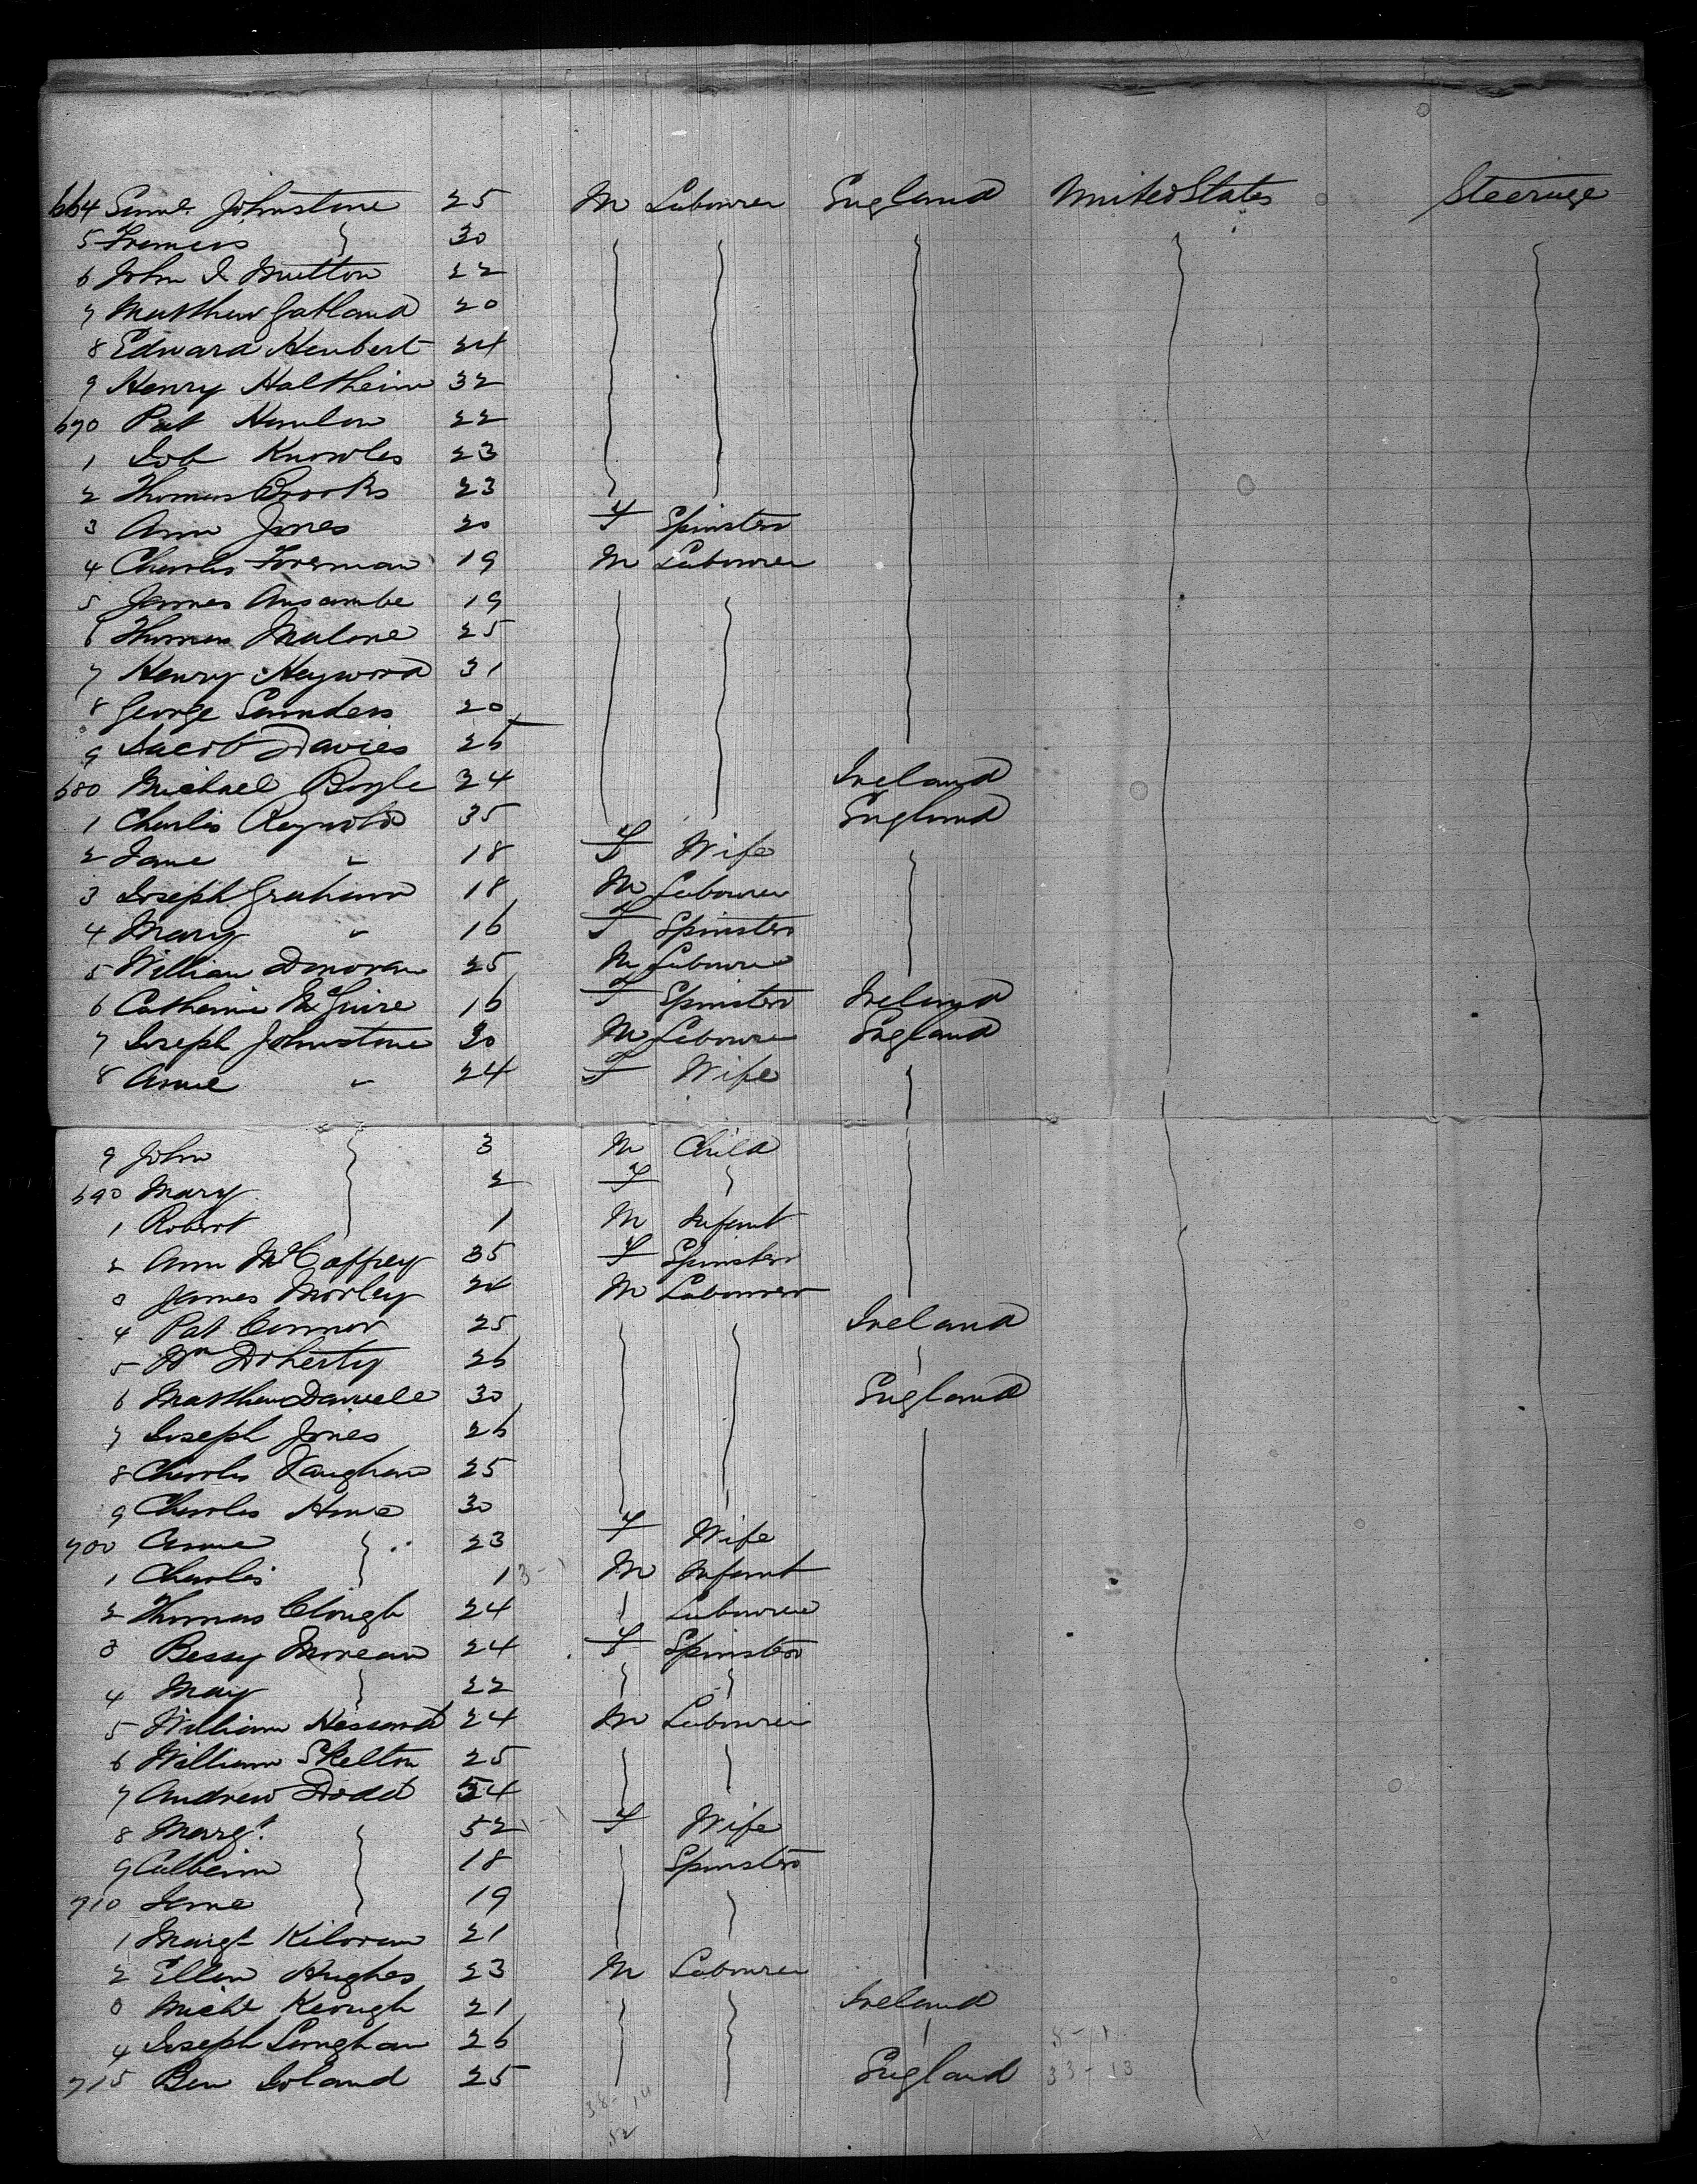 664 Saml. Johnstone 25 M Labourer England United States Steerage
5 Frances } 30
6 John I Mutton 22
7 Matthew Gatland 20
8 Edward Herbert 24
9 Henry 32
670 Pat Hanlon 22
1 Job Knowles 23
2 Thomas Brooks 23
3 Ann Jones 20 F Spinster
4 Charles Foreman 19 M Labourer
5 James Anscombe 19
6 Thomas Malone 25
7 Henry Heywood 31
8 George Saunders 20
9 Jacob Davies 26
680 Michael Boyle 24 Ireland
1 Charles Reynolds 35 England
2 Jane " 18 F Wife
3 Joseph Graham 18 M Labourer
4 Mary " 16 F Spinster
5 William Donovan 25 M Labourer
6 Catherine McGuire 16 F Spinster Ireland
7 Joseph Johnstone 30 M Labourer England
8 Anne " 24 F Wife
9 John } 3 M Child
690 Mary 2 F
1 Robert 1 M Infant
2 Ann McCaffrey 35 F Spinster
3 James Morley 24 M Labourer
4 Pat Connor 25 Ireland
5 Wm Doherty 26
6 Matthew 30 England
7 Joseph Jones 26
8 Charles Vaughan 25
9 Charles 30
700 Anne } 23 F Wife
1 Charles 1 M Infant
2 Thomas Clough 24 Labourer
3 Bessy 24 F Spinster
4 May } 22
5 William 24 M Labourer
6 William Skelton 25
7 Andrew Dodd 54
8 Margt. } 52 F Wife
9 18 Spinster
710 Jane 19
1 Margt 21
2 Ellen Hughes 23 M Labourer
3 Michl Keough 21 Ireland
4 Joseph 26
715 Ben 25 England 33-13
52